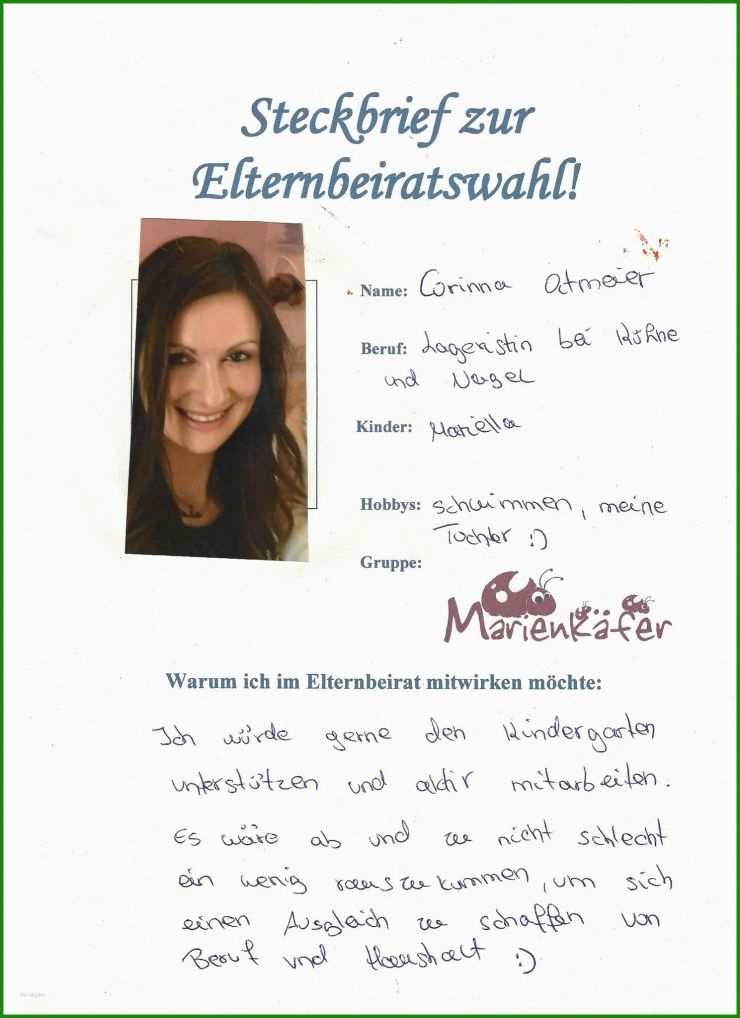 Steckbrief zur
Elternbeiratswahl!
Name: Corinna Ostmeier
Beruf: Lageristin bei Kühne
und Nagel
Kinder: Mariella
Hobbys: schwimmen, meine
Tochter :)
Gruppe:
Marienkäfer
Warum ich im Elternbeirat mitwirken möchte:
Ich würde gerne den Kindergarten
unterstützen und aktiv mitarbeiten.
Es wäre ab und zu nicht schlecht
ein wenig rauszukommen, um sich
einen Ausgleich zu schaffen von
Beruf und Haushalt :)